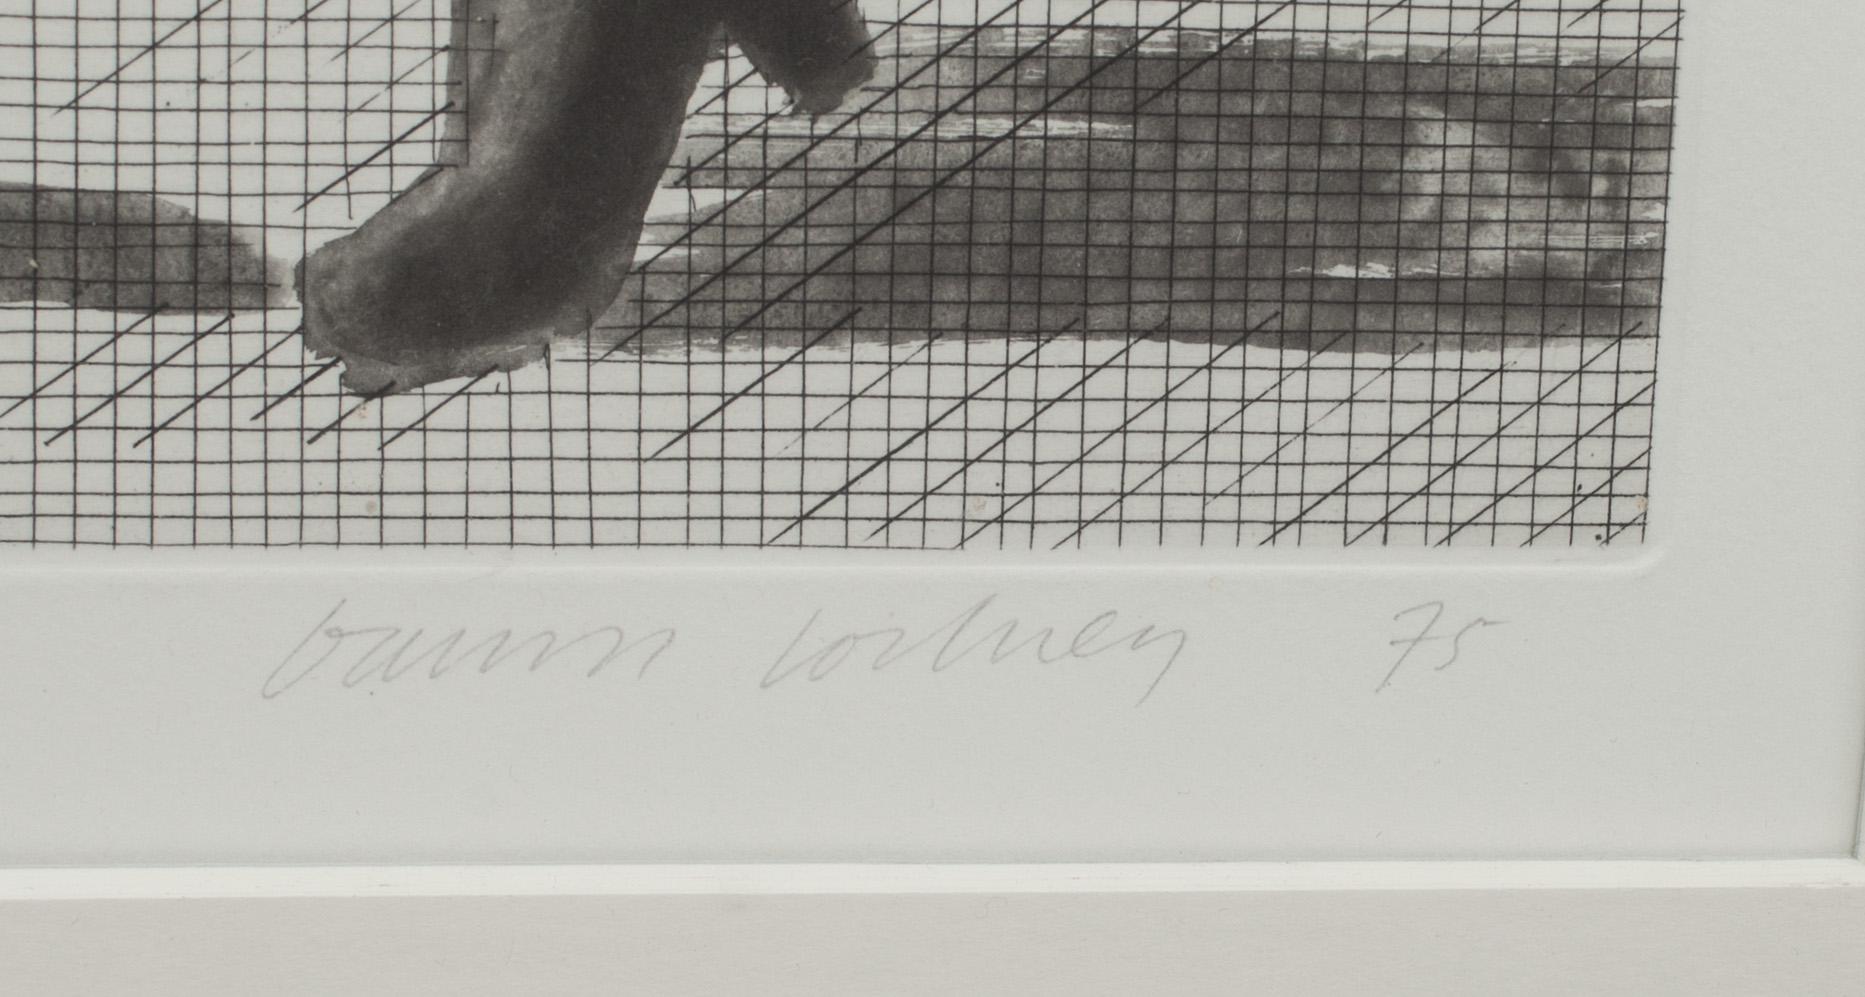 David Hockney 75